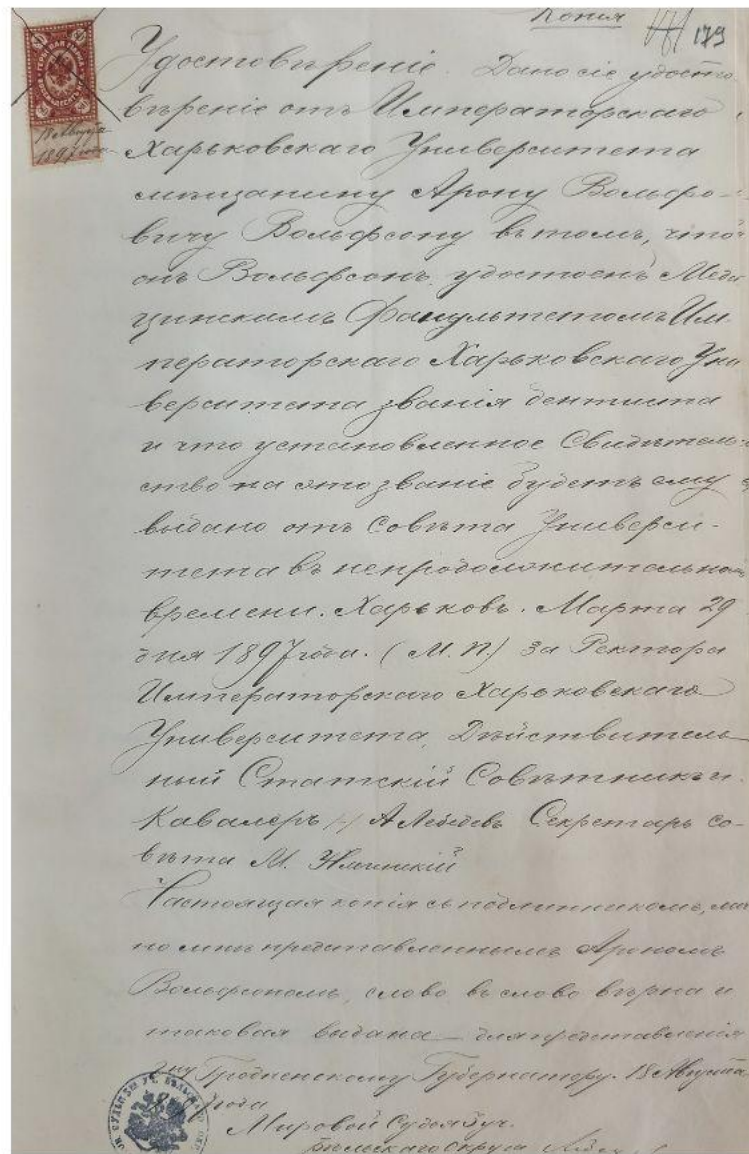 Копия
179
18 Августа
1897 года
Удостовѣреніе. Дано сіе удосто-
вѣреніе отъ Императорскаго
Харьковскаго Университета
мѣщанину Арону Вольфо-
вичу Вольфсону въ томъ, что
онъ Вольфсонъ, удостоенъ Меди
цинскимъ Факультетомъ Им-
ператорскаго Харьковскаго Уни
верситета званія дентиста
и что установленное Свидѣтель-
ство на это званіе будетъ ему
выдано отъ Совѣта Универси-
тета въ непродолжительномъ
времени. Харьковъ. Марта 29
дня 1897 года. (М. П.) За Ректора
Императорскаго Харьковскаго
Университета, Дѣйствитель
ный Статскій Совѣтникъ и
Кавалеръ (-) А Лебедевъ Секретарь со-
вѣта М.
Настоящая копія съ подлинникомъ, лич
но мнѣ представленнымъ Арономъ
Вольфсономъ, слово въ слово вѣрна и
таковая выдана для представленія
Гродненскому Губернатору. 18 Августа
года
Мировой Судья уч.
Бѣльскаго Округа